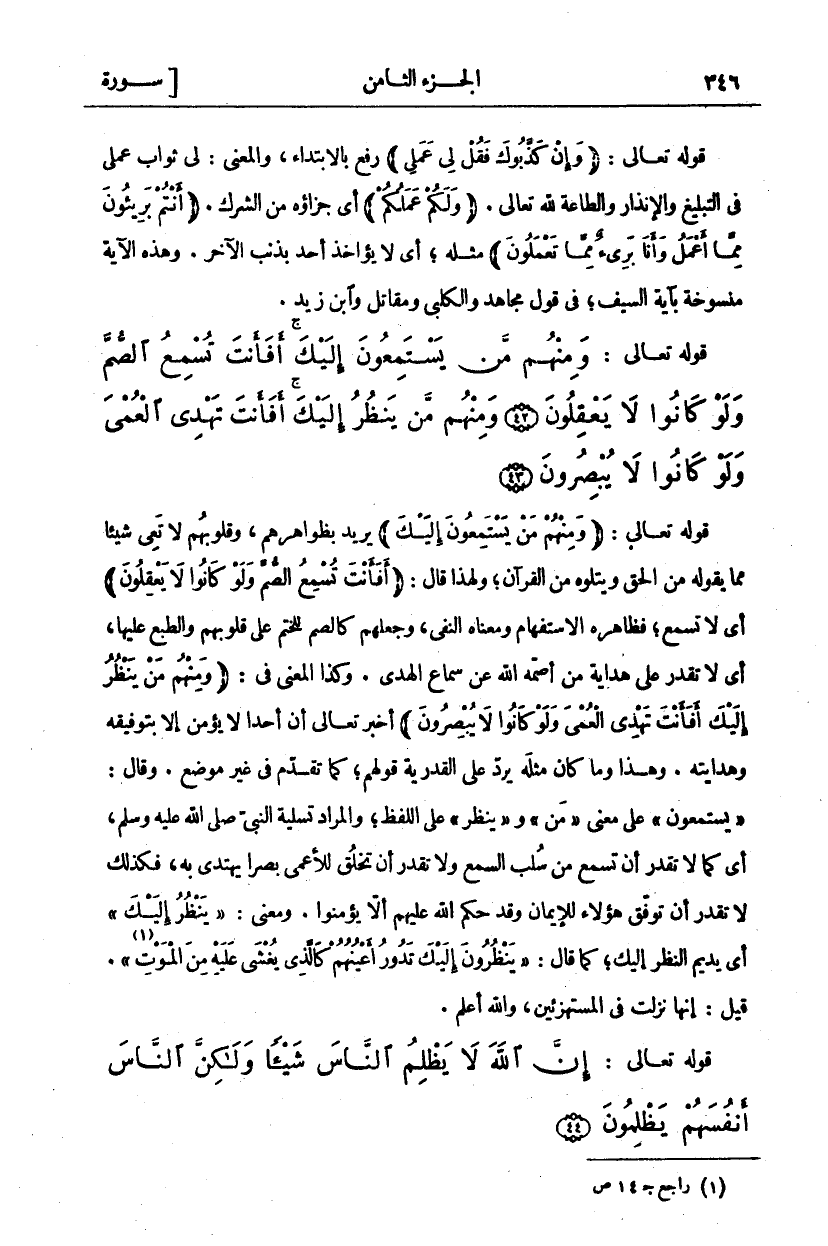 ٣٤٦ الجـزء الثـامن [ ســورة
قوله تعـالى : ﴿ وَإِنْ كَذَّبُوكَ فَقُلْ لِي عَمَلِي ﴾ رفع بالابتداء ، والمعنى : لى ثواب عملى
فى التبليغ والإنذار والطاعة لله تعالى . ﴿ وَلَكُمْ عَمَلُكُمْ ﴾ أى جزاؤه من الشرك . ﴿ أَنْتُمْ بَرِيئُونَ
مِمَّـا أَعْمَلُ وَأَنَا بَرِىءٌ مِمَّـا تَعْمَلُونَ ﴾ مثـله ؛ أى لا يؤاخذ أحد بذنب الآخر . وهذه الآية
منسوخة بآية السيف ؛ فى قول مجاهد والكلبى ومقاتل وٱبن زيد .
قوله تعـالى : وَمِنْهُم مَّن يَسْتَمِعُونَ إِلَيْكَ ۚ أَفَأَنتَ تُسْمِعُ ٱلصُّمَّ
وَلَوْ كَانُوا لَا يَعْقِلُونَ ﴿٤٢﴾ وَمِنْهُم مَّن يَنظُرُ إِلَيْكَ ۚ أَفَأَنتَ تَهْدِى ٱلْعُمْىَ
وَلَوْ كَانُوا لَا يُبْصِرُونَ ﴿٤٣﴾
قوله تعـالى : ﴿ وَمِنْهُمْ مَنْ يَسْتَمِعُونَ إِلَيْـكَ ﴾ يريد بظواهرهم ، وقلوبُهُم لا تَعِى شيئا
مما يقوله من الحق ويتلوه من القرآن ؛ ولهذا قال : ﴿ أَفَأَنْتَ تُسْمِعُ الصُّمَّ وَلَوْ كَانُوا لَا يَعْقِلُونَ ﴾
أى لا تسمع ؛ فظاهره الاستفهام ومعناه النفى ، وجعلهم كالصم للختم على قلوبهم والطبع عليها ،
أى لا تقدر على هداية من أصمّه الله عن سماع الهدى . وكذا المعنى فى : ﴿ وَمِنْهُمْ مَنْ يَنْظُرُ
إِلَيْكَ أَفَأَنْتَ تَهْدِى الْعُمْىَ وَلَوْ كَانُوا لَا يُبْصِرُونَ ﴾ أخبر تعـالى أن أحدا لا يؤمن إلا بتوفيقه
وهدايته . وهـذا وما كان مثلَه يردّ على القدرية قولهم ؛ كما تقـدّم فى غير موضع . وقال :
« يستمعون » على معنى « مَن » و « ينظر » على اللفظ ؛ والمراد تسلية النبىّ صلى الله عليه وسلم ،
أى كما لا تقدر أن تسمع من سُلب السمع ولا تقدر أن تخلُق للأعمى بصرا يهتدى به ، فكذلك
لا تقدر أن توفّق هؤلاء للإيمان وقد حكم الله عليهم ألّا يؤمنوا . ومعنى : « يَنْظُرُ إِلَيْـكَ »
أى يديم النظر إليك ؛ كما قال : « يَنْظُرُونَ إِلَيْكَ تَدُورُ أَعْيُنُهُمْ كَالَّذِى يُغْشَى عَلَيْهِ مِنَ الْمَوْتِ (١) » .
قيل : إنها نزلت فى المستهزئين ، والله أعلم .
قوله تعـالى : إِنَّ ٱللَّهَ لَا يَظْلِمُ ٱلنَّاسَ شَيْـًٔا وَلَـٰكِنَّ ٱلنَّاسَ
أَنفُسَهُمْ يَظْلِمُونَ ﴿٤٤﴾
(١) راجع جـ ١٤ ص